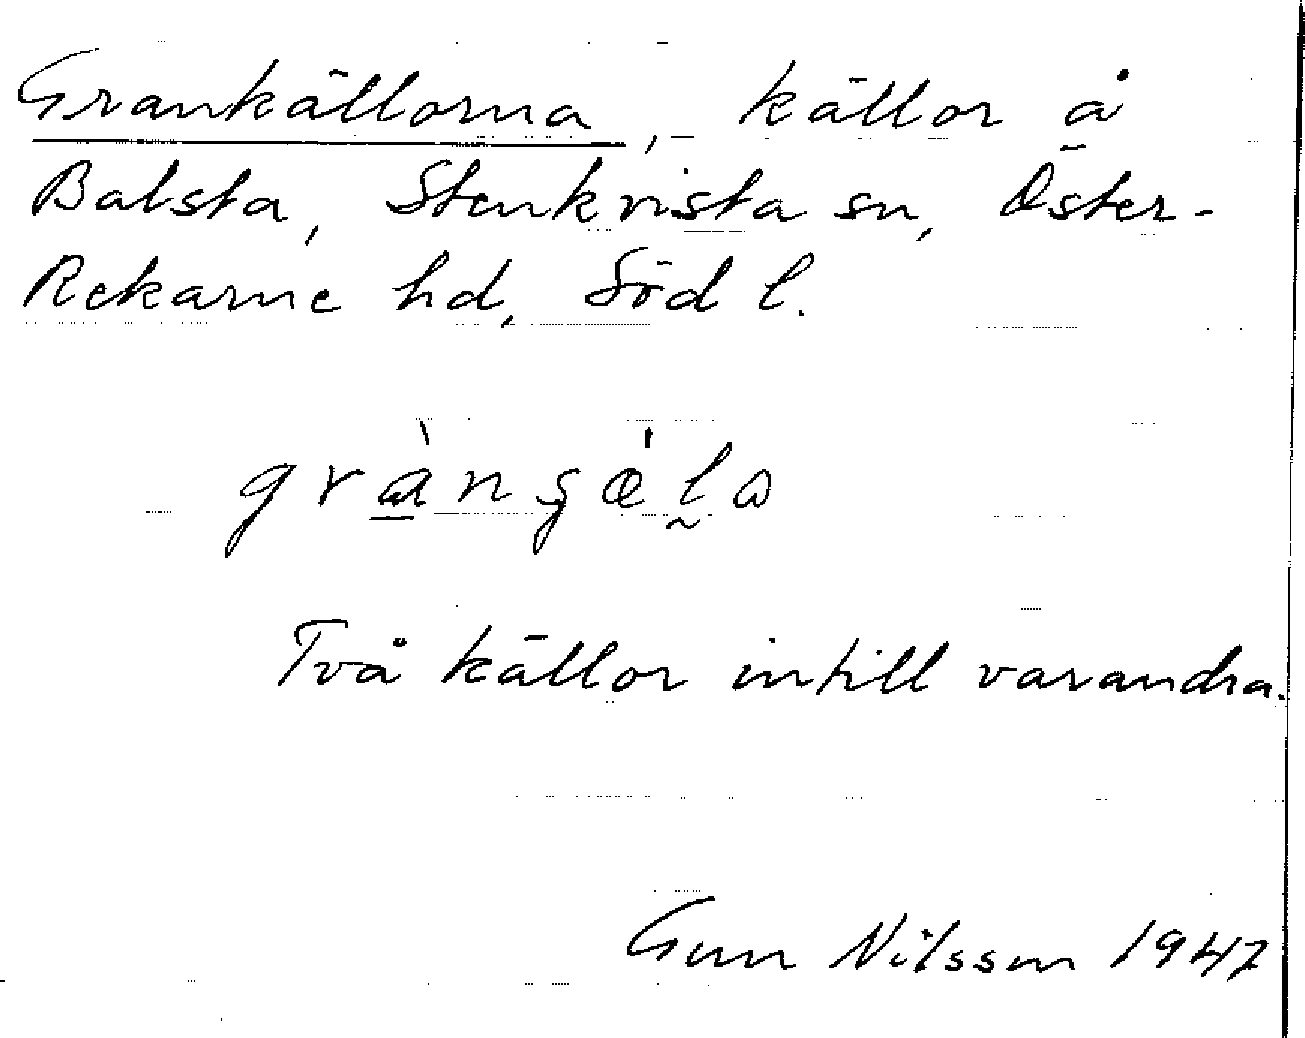 Grankällorna, källor å
Balsta, Stenkvista sn, Öster-
Rekarne hd, Söd l.
gràngæ̀la
Två källor intill varandra.
Gun Nilsson 1947